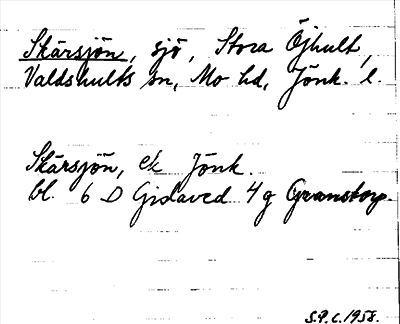 Skärsjön, sjö, Stora Öjhult,
Valdshults sn, Mo hd, Jönk. l.
Skärsjön, ek Jönk.
bl. 6 D Gislaved 4 g Granstorp.
S.P.C. 1958.